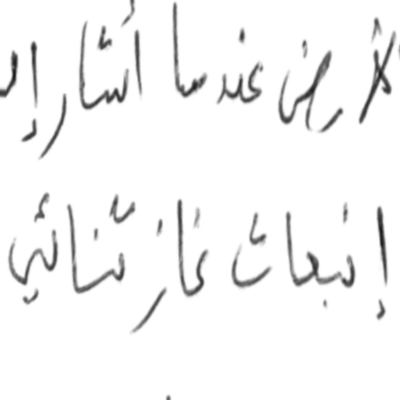 الأرض عندما أشار إلى
إنبعاث غاز ثنائي